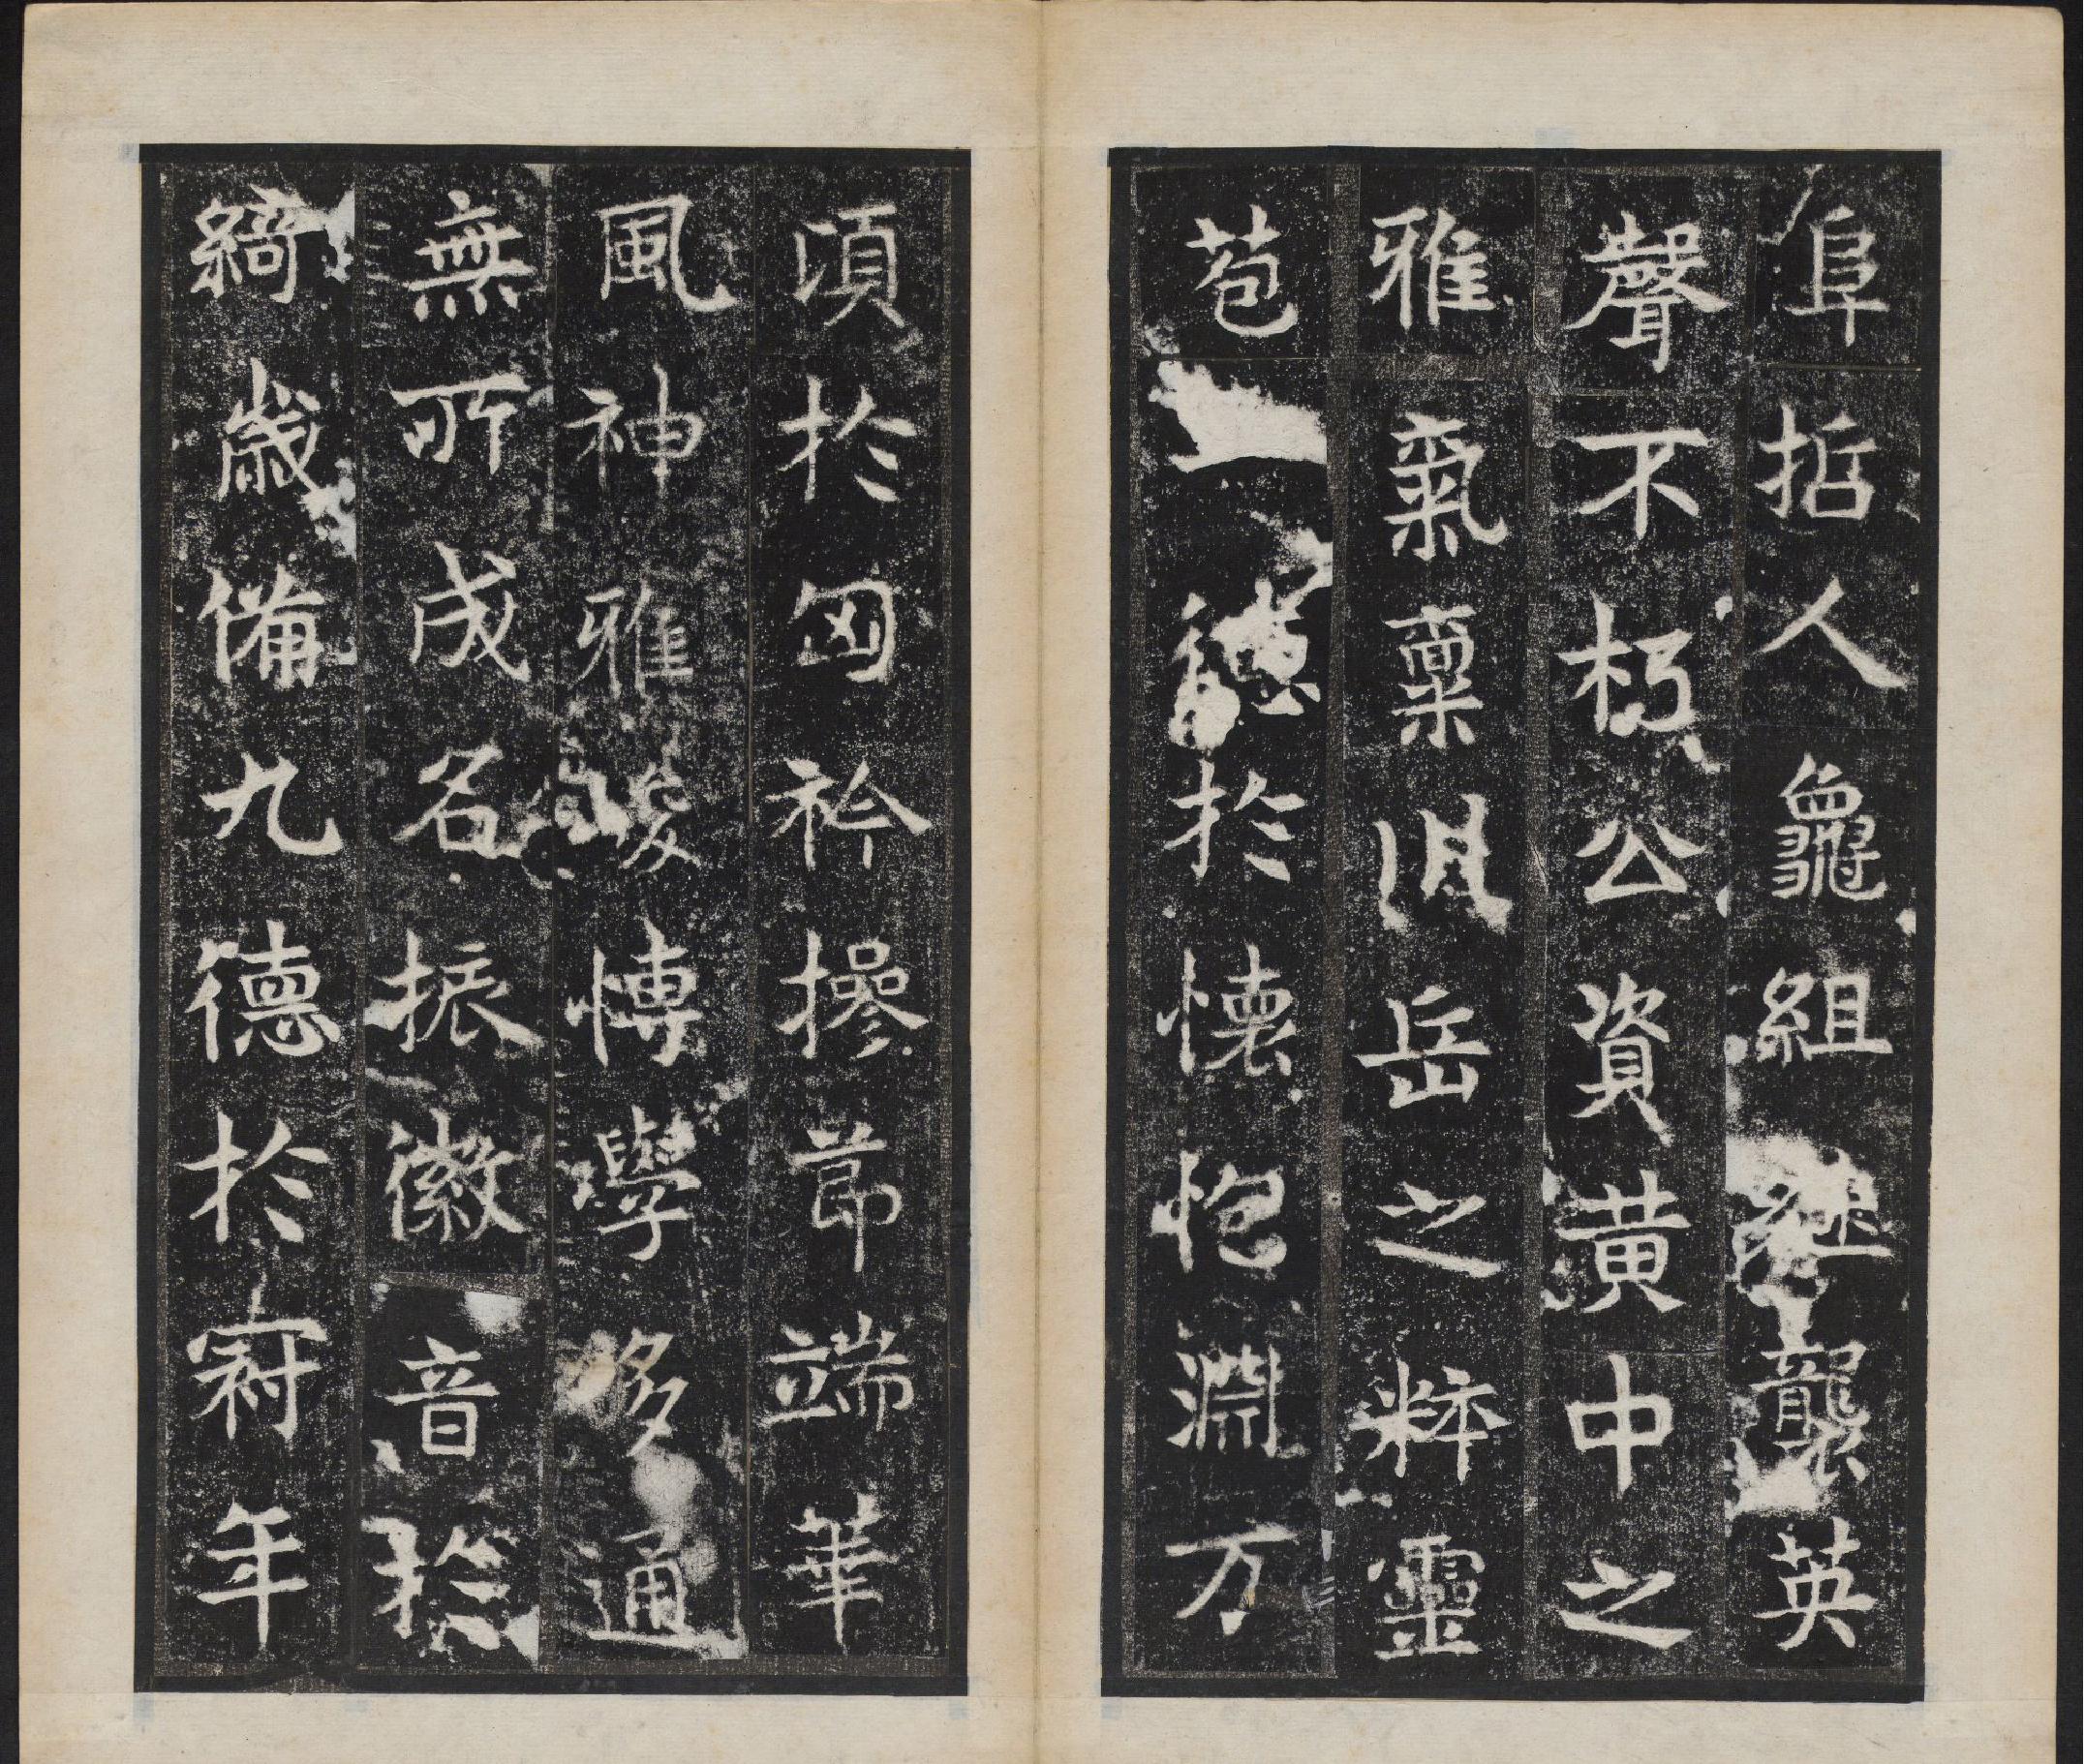 阜哲人龜組繼襲英
聲不朽公資黃中之
雅氣稟川岳之粹靈
苞於懷抱淵万
頃於匈衿操節端華
風神雅峻博學多通
無所成名振徽音於
綺歲備九德於冠年